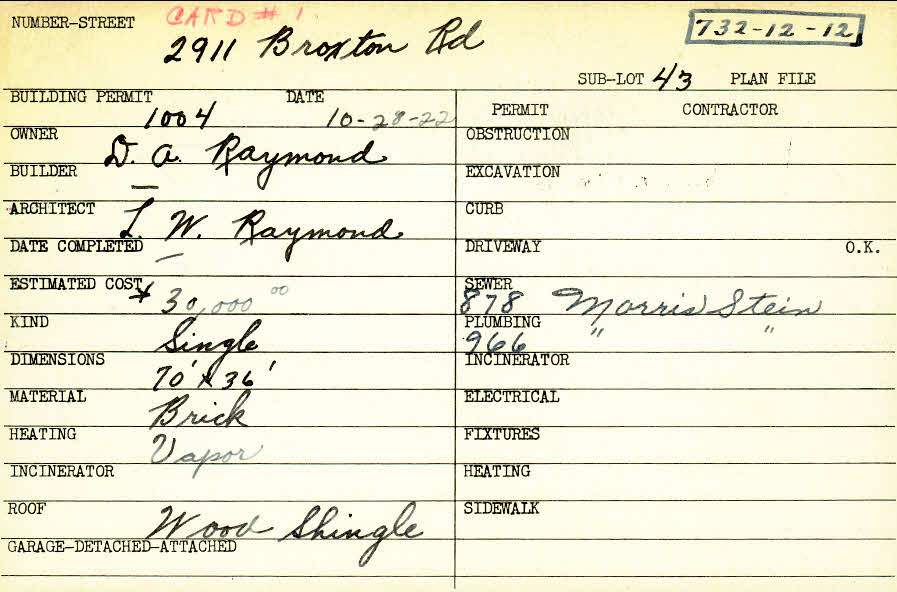 CARD # 1
NUMBER-STREET
2911 Broxton Rd
732-12-12
SUB-LOT 43 PLAN FILE
BUILDING PERMIT DATE
1004 10-28-22
OWNER
D. A. Raymond
BUILDER
—
ARCHITECT
L. W. Raymond
DATE COMPLETED
—
ESTIMATED COST
$30,000 00
KIND
Single
DIMENSIONS
70' x 36'
MATERIAL
Brick
HEATING
Vapor
INCINERATOR
ROOF
Wood Shingle
GARAGE-DETACHED-ATTACHED
PERMIT CONTRACTOR
OBSTRUCTION
EXCAVATION
CURB
DRIVEWAY O.K.
SEWER
878 Morris Stein
PLUMBING
966 " "
INCINERATOR
ELECTRICAL
FIXTURES
HEATING
SIDEWALK